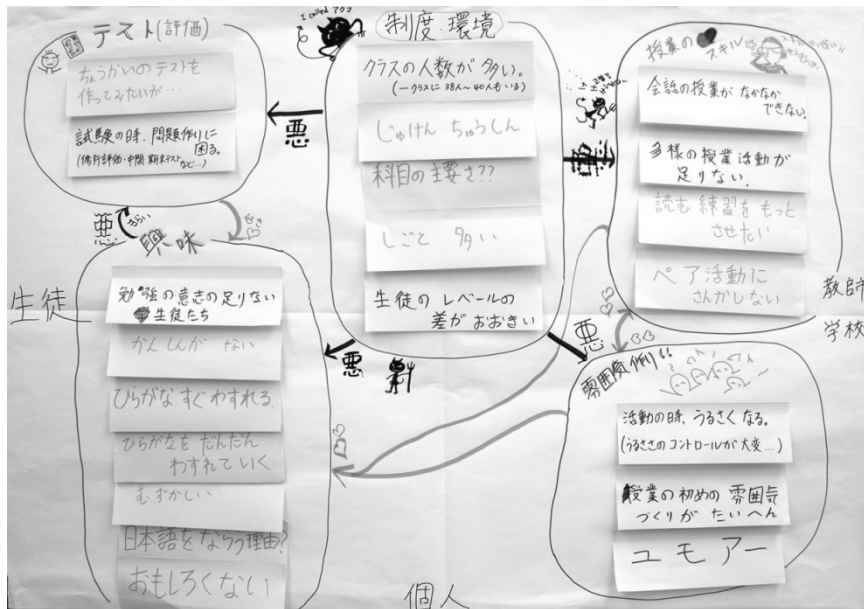 テスト(評価)
ちょうかいのテストを
作ってみたいが…
試験の時、問題作りに
困る。
(修行評価・中間・期末テスト
など…)
I called アクマ
制度・環境
クラスの人数が多い。
(一クラスに38人～40人もいる)
じゅけん ちゅうしん
科目の主要さ??
しごと 多い
生徒の レベールの
差がおおきい
授業の
スキル
会話の授業が なかなか
できない。
多様の授業活動が
足りない。
読む 練習をもっと
させたい
ペア活動に
さんかしない
悪
悪
悪
きらい
興味
勉強の意きの足りない
生徒たち
かんしんが ない
ひらがな すぐ わすれる
ひらがなを だんだん
わすれていく
むずかしい
日本語をならう理由?
おもしろくない
悪
雰囲気作り!!
活動の時、うるさくなる。
(うるささのコントロールが大変…)
授業の初めの 雰囲気
づくりが たいへん
ユモアー
生徒
教師
学校
個人